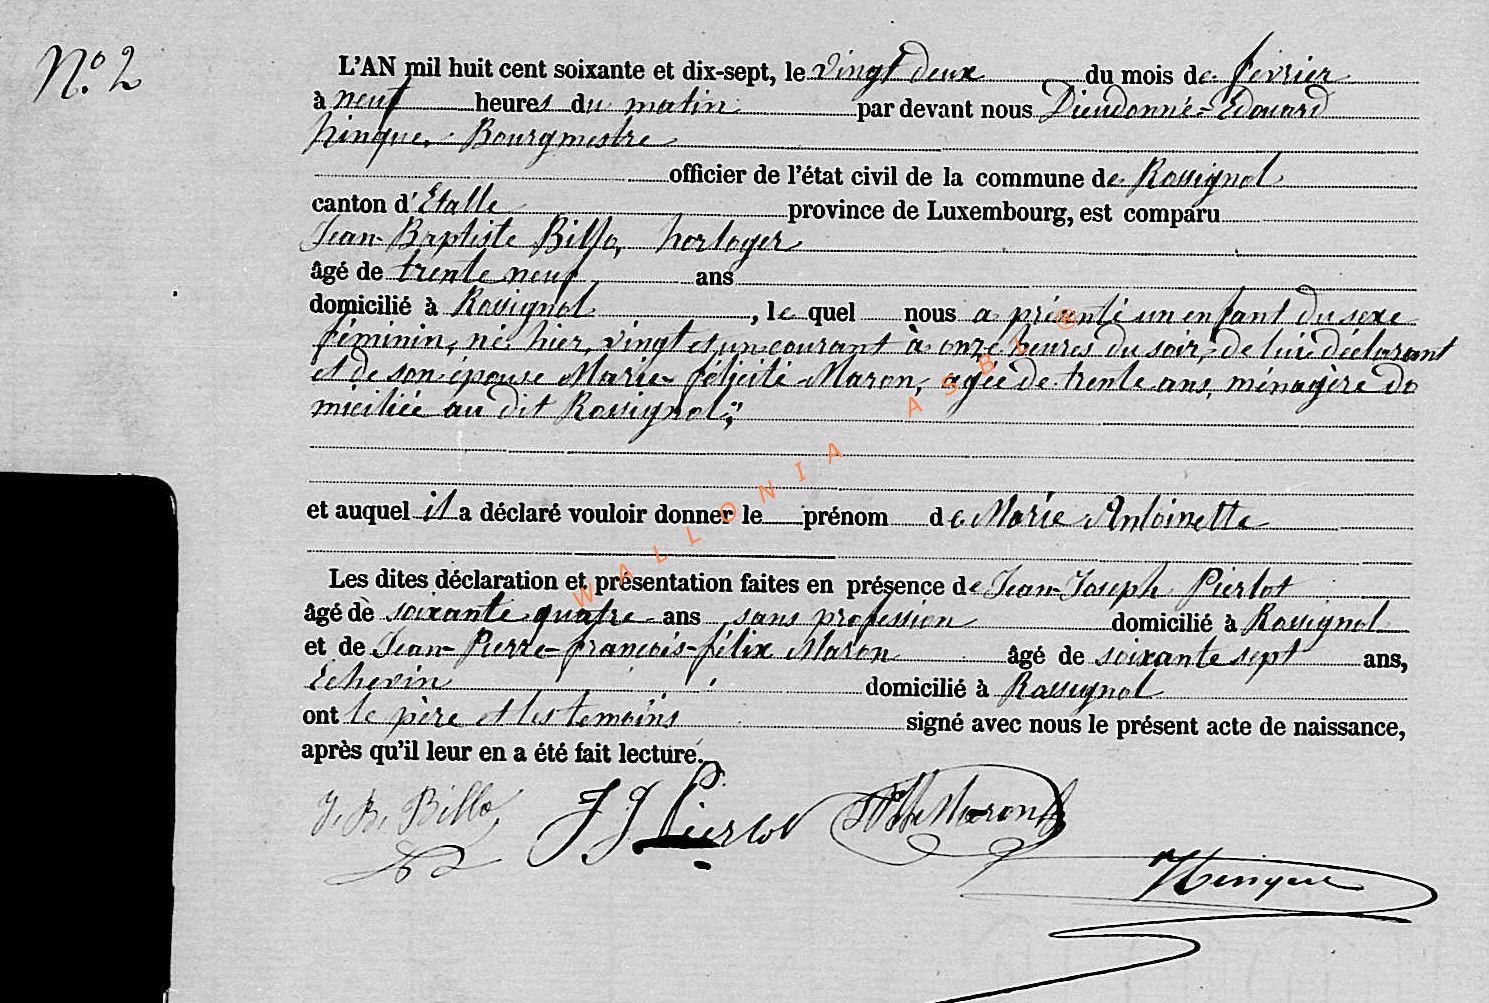 N.o 2
L'AN mil huit cent soixante et dix-sept, le vingt deux du mois de février
à neuf heures du matin par devant nous Dieudonné-Edouard
hinque, Bourgmestre
officier de l'état civil de la commune de Rossignol
canton d'Etalle province de Luxembourg, est comparu
Jean-Baptiste Billo, horloger
âgé de trente neuf ans
domicilié à Rossignol, le quel nous a présenté un enfant du sexe
féminin, né hier, vingt et un courant à onze heures du soir, de lui déclarant
et de son épouse Marie-félicité Maron, agée de trente ans, ménagère do
miciliée au dit Rossignol,"
et auquel il a déclaré vouloir donner le prénom de Marie Antoinette
Les dites déclaration et présentation faites en présence de Jean-Joseph Pierlot
âgé de soixante quatre ans sans profession domicilié à Rossignol
et de Jean-Pierre-françois-félix Maron âgé de soixante sept ans,
Echevin domicilié à Rossignol
ont le père et les temoins signé avec nous le présent acte de naissance,
après qu'il leur en a été fait lecture.
J. B. Billo J J Pierlot Maron
Hinque
WALLONIA ASBL ©